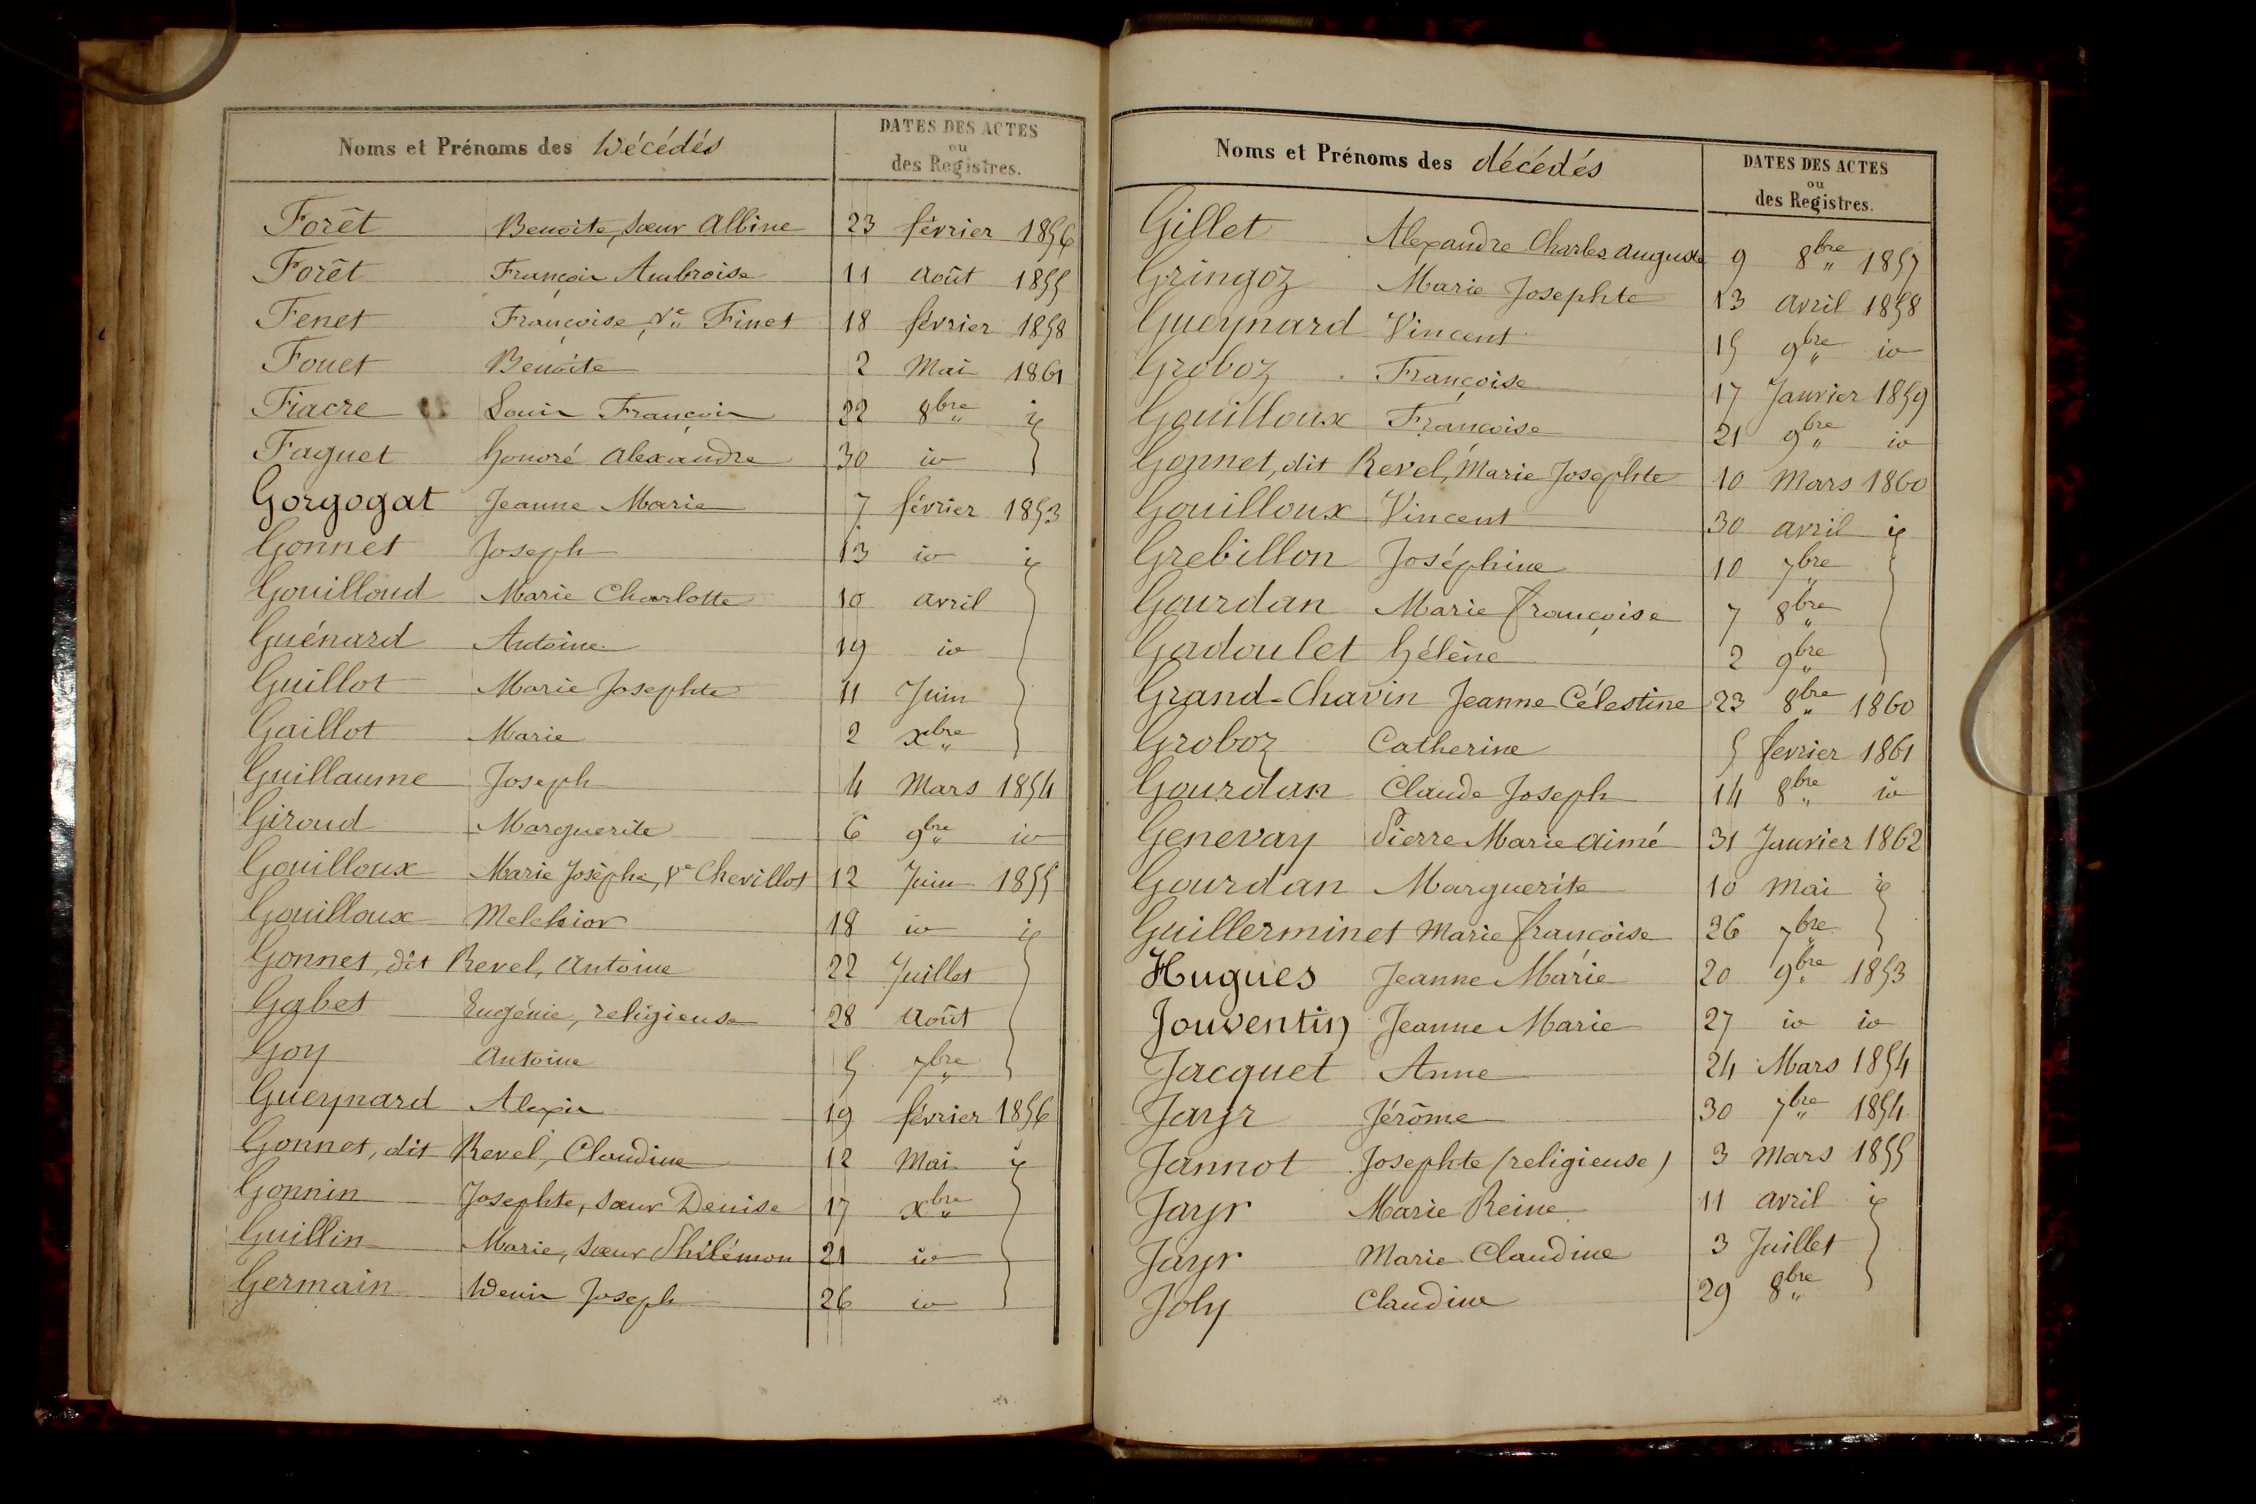 Noms et Prénoms des Décédés
DATES DES ACTES
ou
des Registres.
Forêt Benoite, sœur Albine 23 février 1856
Forêt François Ambroise 11 Août 1855
Fenet Françoise, Ve Finet 18 février 1858
Fouet Benoîte 2 Mai 1861
Fiacre Louis François 22 8bre id
Faguet honoré Alexandre 30 id
Gorgogat Jeanne Marie 7 février 1853
Gonnet Joseph 13 id id
Gouilloud Marie Charlotte 10 avril
Guénard Antoine 19 id
Guillot Marie Josephte 11 Juin
Gaillot Marie 2 xbre
Guillaume Joseph 4 Mars 1854
Giroud Marguerite 6 9bre id
Gouilloux Marie Josèphe, Ve Chevillot 12 Juin 1855
Gouilloux Melchior 18 id id
Gonnet, dit Revel, Antoine 22 Juillet
Gabet Eugénie, religieuse 28 Août
Goy Antoine 5 7bre
Gueynard Alexis 19 février 1856
Gonnet, dit Revel, Claudine 12 Mai id
Gonnin Josephte, sœur Denise 17 xbre
Guillin Marie, sœur Philémon 21 id
Germain Denis Joseph 26 id
Noms et Prénoms des décédés
DATES DES ACTES
ou
des Registres.
Gillet Alexandre Charles Auguste 9 8bre 1857
Gringoz Marie Josephte 13 avril 1858
Gueynard Vincent 15 9bre id
Groboz Françoise 17 Janvier 1859
Gouilloux Françoise 21 9bre id
Gonnet, dit Revel, Marie Josephte 10 Mars 1860
Gouilloux Vincent 30 avril id
Grebillon Joséphine 10 7bre
Gourdan Marie françoise 7 8bre
Gadoulet hélène 2 9bre
Grand-Chavin Jeanne Célestine 23 8bre 1860
Groboz Catherine 5 fevrier 1861
Gourdan Claude Joseph 14 8bre id
Genevay Pierre Marie Aimé 31 Janvier 1862
Gourdan Marguerite 10 Mai id
Guillerminet Marie françoise 26 7bre
Hugues Jeanne Marie 20 9bre 1853
Jouventin Jeanne Marie 27 id id
Jacquet Anne 24 Mars 1854
Jayr Jérôme 30 7bre 1854
Jannot Josephte (religieuse) 3 Mars 1855
Jayr Marie Reine 11 avril id
Jayr Marie Claudine 3 Juillet
Joly Claudine 29 8bre